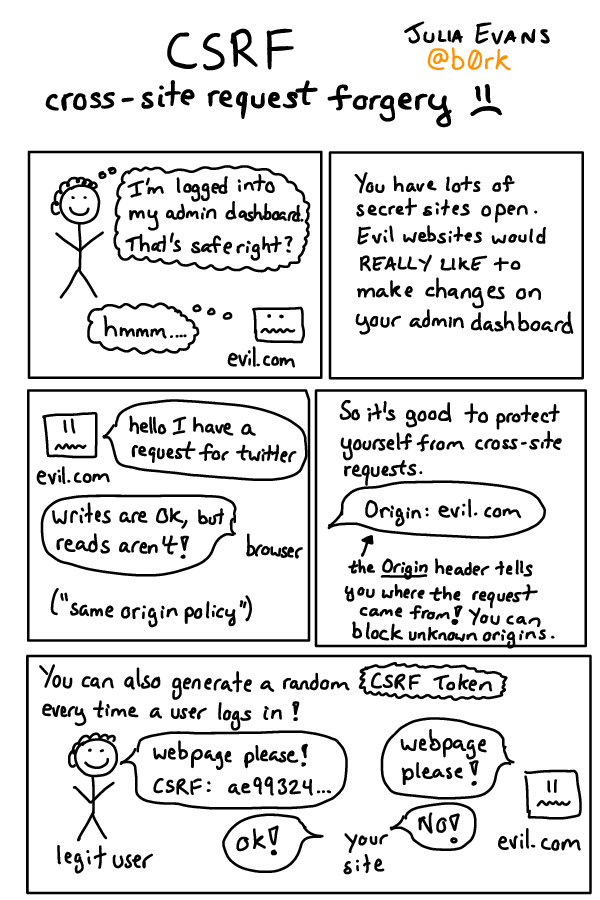 CSRF
JULIA EVANS
@b0rk
cross-site request forgery
I'm logged into
my admin dashboard.
That's safe right?
hmmm....
evil.com
You have lots of
secret sites open.
Evil websites would
REALLY LIKE to
make changes on
your admin dashboard
hello I have a
request for twitter
evil.com
writes are OK, but
reads aren't!
browser
("same origin policy")
So it's good to protect
yourself from cross-site
requests.
Origin: evil.com
the Origin header tells
you where the request
came from! You can
block unknown origins.
You can also generate a random CSRF Token
every time a user logs in!
webpage please!
CSRF: ae99324...
legit user
ok!
your
site
webpage
please!
No!
evil.com